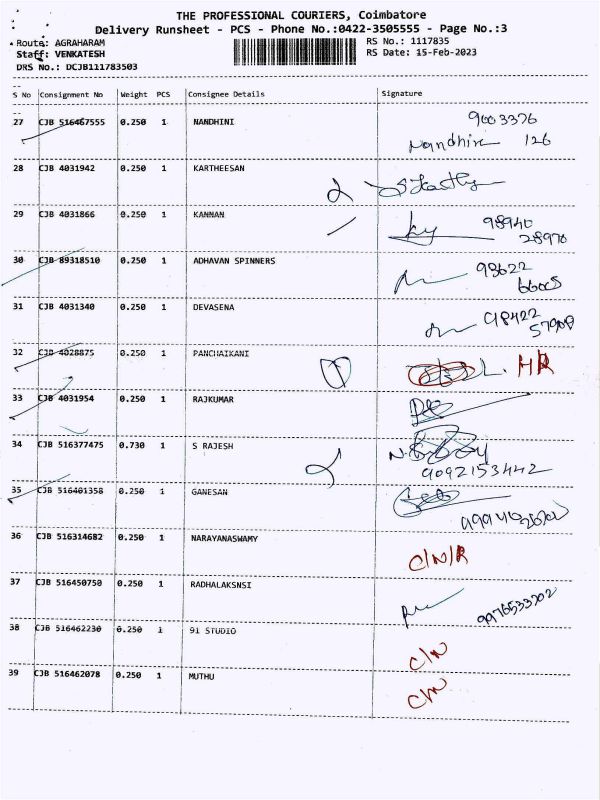 THE PROFESSIONAL COURIERS, Coimbatore
Delivery Runsheet - PCS - Phone No.:0422-3505555 - Page No.:3
Route: AGRAHARAM
RS No.: 1117835
Staff: VENKATESH
RS Date: 15-Feb-2023
DRS No.: DCJB111783503
S No Consignment No Weight PCS Consignee Details Signature
27 CJB 516467555 0.250 1 NANDHINI 9003376
Nandhini 126
28 CJB 4031942 0.250 1 KARTHEESAN
29 CJB 4031866 0.250 1 KANNAN 98940
28970
30 CJB 89318510 0.250 1 ADHAVAN SPINNERS 98622
66005
31 CJB 4031340 0.250 1 DEVASENA 98422
57908
32 CJB 4028875 0.250 1 PANCHAIKANI HR
33 CJB 4031954 0.250 1 RAJKUMAR
34 CJB 516377475 0.730 1 S RAJESH
9092153442
35 CJB 516401358 0.250 1 GANESAN
36 CJB 516314682 0.250 1 NARAYANASWAMY C/N/R
37 CJB 516450750 0.250 1 RADHALAKSNSI 9976533202
38 CJB 516462230 0.250 1 91 STUDIO C/N
39 CJB 516462078 0.250 1 MUTHU C/N